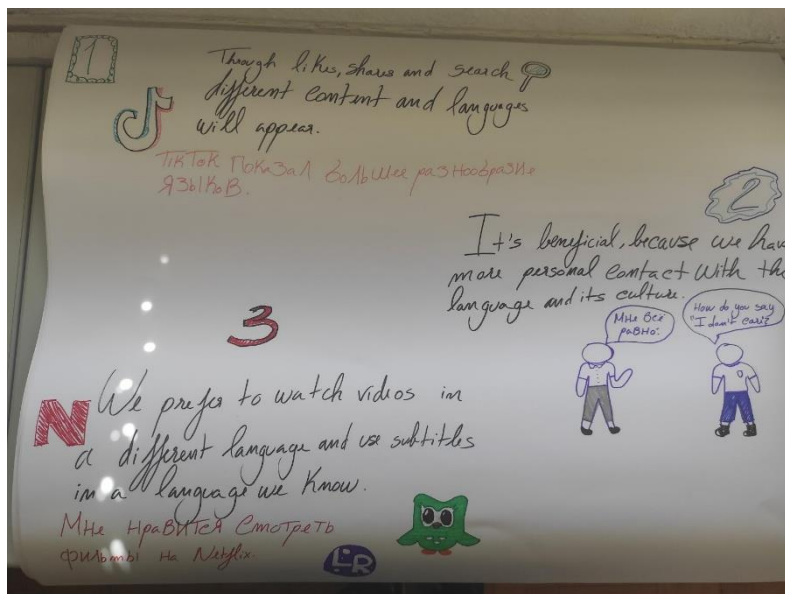 1
Through likes, shares and search
different content and languages
will appear.
TikTok показал большее разнообразие
языков.
2
It's beneficial, because we hav
more personal contact with the
language and its culture.
Мне всё
равно.
How do you say
"I don't care?
3
N
We prefer to watch videos in
a different language and use subtitles
in a language we know.
Мне нравится смотреть
фильмы на Netflix.
LR